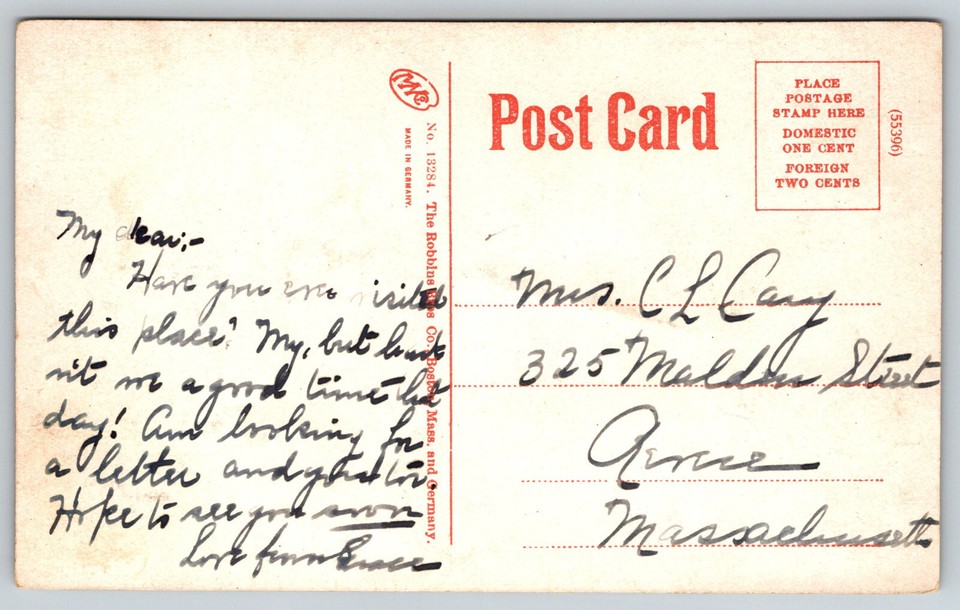 My dear;-
Have you ever visited
this place? My, but
we a good time that
day! Am looking for
a letter and you too.
Hope to see you soon
Love from Grace
MADE IN GERMANY.
No. 13284. The Robbins Bros Co., Boston, Mass. and Germany.
Post Card
PLACE
POSTAGE
STAMP HERE
DOMESTIC
ONE CENT
FOREIGN
TWO CENTS
(55396)
Mrs. C L Cary
325 Malden Street
Revere
Massachusetts